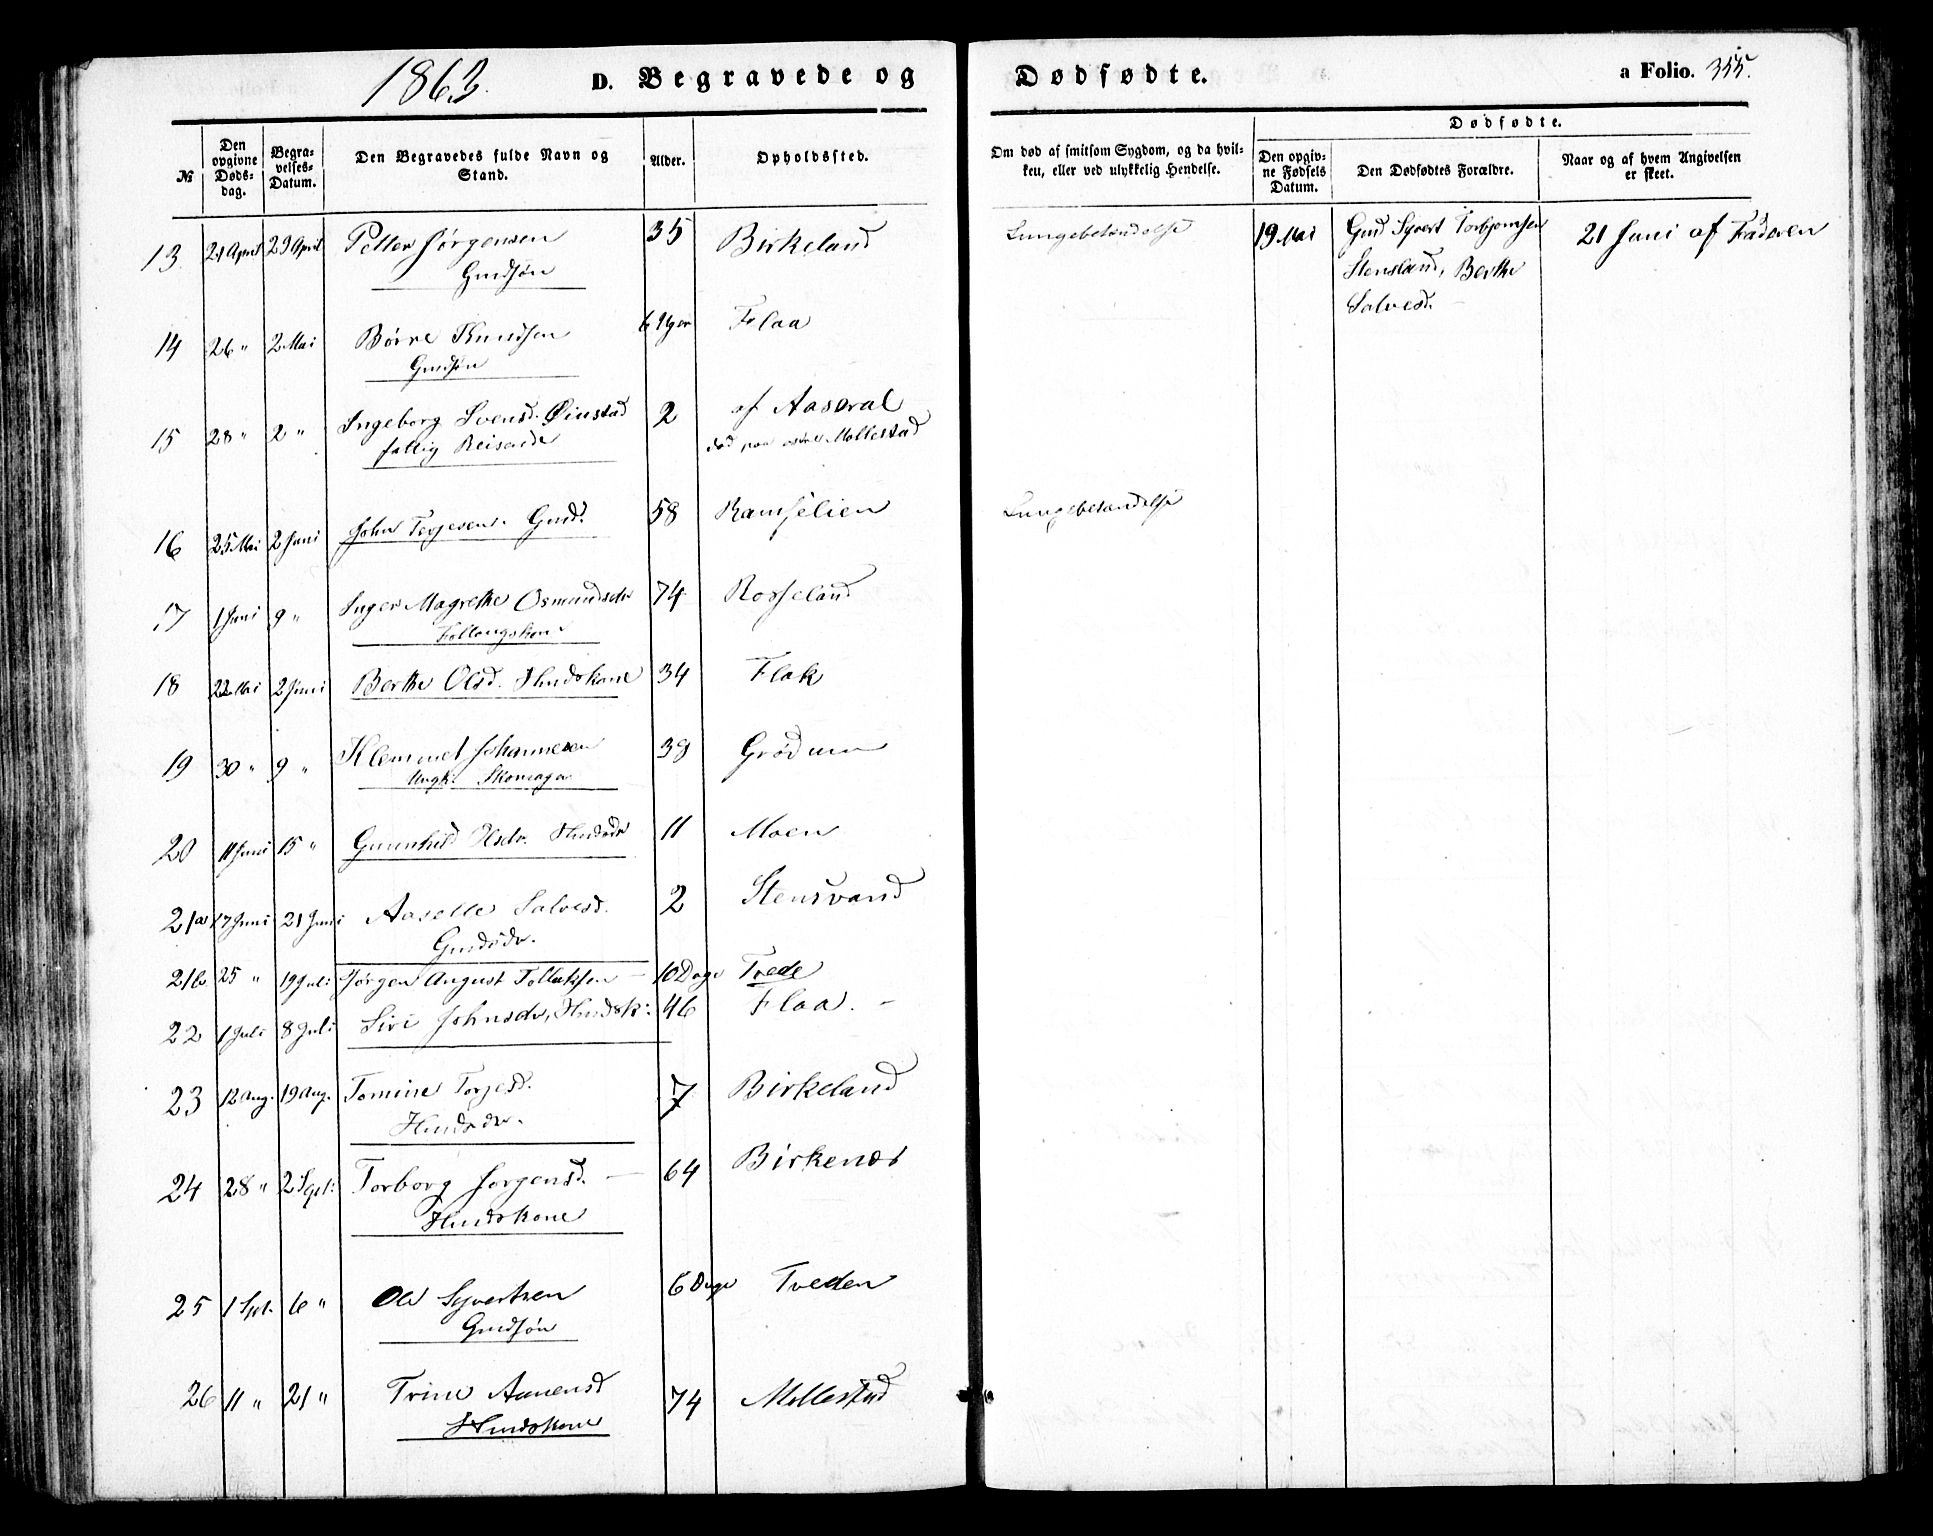 1863. D. Begravede og Dødfødte. a Folio. 355.
№
Den opgivne Døds-dag.
Begra-velses-Datum.
Den Begravedes fulde Navn og Stand.
Alder.
Opholdssted.
Om død af smitsom Sygdom, og da hvil-ken, eller ved ulykkelig Hendelse.
Dødfødte.
Den opgiv-ne Fødsels Datum.
Den Dødfødtes Forældre.
Naar og af hvem Angivelsen er skeet.
13. 21 April 29 April Petter Jørgensen 35 Birkeland Lungebetændelse 19 Mai Gmd Syvert Torbjornsen 21 Juni af Faderen
Gmdsøn Stensland, Berthe
Salvesd.
14 26 " 2 Mai Børre Knudsen 6 Uger Flaa
Gmdsøn
15 28 " 2 " Ingeborg Svensd. Øinstad 2 af Aaseral
fattig Reisende død paa Mollestad
16 25 Mai 2 Juni John Terjesen. Gmd. 58 Ramselien Lungebetændelse
17 1 Juni 9 " Inger Magrethe Osmundsdr 74 Rosseland
18 22 Mai 2 Juni Berthe Olsd. Hmdskone 34 Flak
19 30 " 9 " Klemmet Johannesen 38 Grødum
Ungk. Skomager
20 11 Juni 15 " Gunnhild Hmdsdr 11 Moen
21a 17 Juni 21 Juni Aaselle Salvesd. 2 Stensvand
Gmdsdr.
21b. 25 " 19 Juli Jørgen August Tollaksen — 10 Dage Tvede
22 1 Juli 8 Juli Siri Johnsdr, Hmdsk: 46 Flaa. -
23 12 Aug. 19 Aug. Tomine Torjesd. 7 Birkeland
Hmdsdr.
24 28 " 2 Sept: Torborg Jorgensd. — 64 Birkenes
Hmdskone
25 1 Spt. 6 " Ole Syvertsen 6 Dage Tveden
Gmdsøn
26 11 " 21 " Trine Aanensd 74 Mollestad
Hmdskone